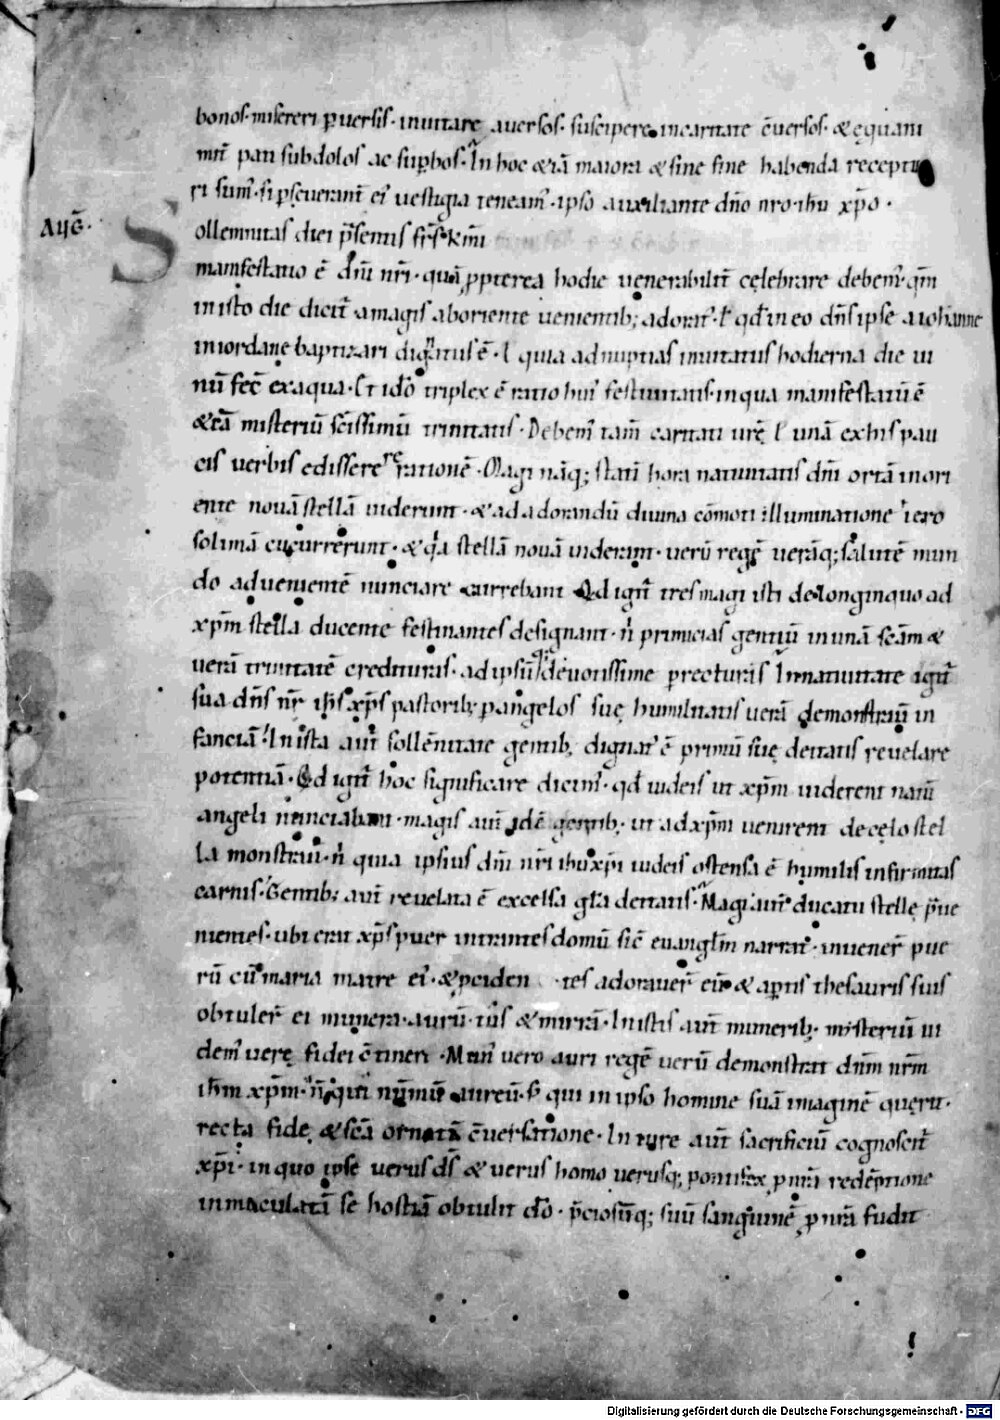 bonos· misereri ꝑuersis· inuitare auersos· suscipere· incaritate c̄uersos· & ęquani
mit̄ pati subdolos ac suꝑbos· In hoc &iā maiora & sine fine habenda receptu
ri sum᷒· si ꝑseuerant̄ ei᷒ uestigia teneam᷒· ipso auxiliante dn̄o nr̄o· ihū xp̄o·
Auḡ·
Sollemnitas diei p̄sentis fr̄s kmi
manifestatio ē dn̄i nr̄i· quā ꝓpterea hodie uenerabilit̄ cęlebrare debem᷒· qm̄
in isto die dicit̄ amagis aboriente uenientib; adorat᷒· ł qđ in eo dn̄s ipse aiohanne
iniordane baptizari dignatus ē· ł quia adnuptias inuitatus hodierna die ui
nū fec̄ exaqua· Et iđo triplex ē ratio hui᷒ festiuitatis· inqua manifestatū ē
&iā misteriū sc̄issimū trinitatis· Debem᷒ tam̄ caritati ur̄ę ł unā exhis pau
cis uerbis edisserere rationē· Magi nāq; statī hora natiuitatis dn̄i ortā inori
ente nouā stellā uiderunt· & ad adorandū diuina cōmoti illuminatione iero
solimā cucurrerunt· & qa stellā nouā uiderunt· uerū regē uerāq; salutē mun
do aduenientē nunciare currebant Qđ igit̄ tres magi isti delonginquo ad
xp̄m stella ducente festinantes designant· n̄ primicias gentiū inunā sc̄am &
uerā trinitatē credituras· adipsū q; deuotissime ꝑrecturas In natiuitate igit̄
sua dn̄s nr̄ ih̄s xp̄s pastorib; ꝑ angelos suę humilitatis uerā demonstrauit in
fanciā· In ista aut̄ sollēnitate gentib; dignat᷒ ē primū suę deitatis reuelare
potentiā· Qđ igit̄ hoc significare dicim᷒· qđ iudeis ut xp̄m uiderent natū
angeli nunciabant· magis aut̄ idē gentib; ut adxp̄m uenirent decęlo stel
la monstrauit· n̄ quia ipsius dn̄i nr̄i ihū xp̄i iudeis ostensa ē humilis infirmitas
carnis· Gentib; aut̄ reuelata ē excelsa gl̄a deitatis· Magi aut̄ ducatu stellę p̄ue
nientes· ubi erat xp̄s puer intrantes domū sic̄ euangl̄m narrat· inuener̄ pue
rū cū maria matre ei᷒· & ꝓciden tes adorauer̄ eū· & aꝑtis thesauris suis
obtuler̄ ei munera· aurū· tus & mirrā· Inistis aut̄ munerib; misteriū ui
dem᷒ uerę fidei c̄tineri· Mun᷒ uero auri regē uerū demonstrat dn̄m nr̄m
ih̄m xp̄m· qui in ipso homine suā imaginē querit·
recta fide, & sc̄a ornatā c̄uersatione· In ture aut̄ sacrificiū cognoscit̄
xp̄i· in quo ipse uerus ds̄ & uerus homo uerusq; pontifex ꝑ nr̄ā redēptione
inmaculatā se hostiā obtulit do· p̄ciosūq; suū sanguinē ꝓ nr̄ā fudit